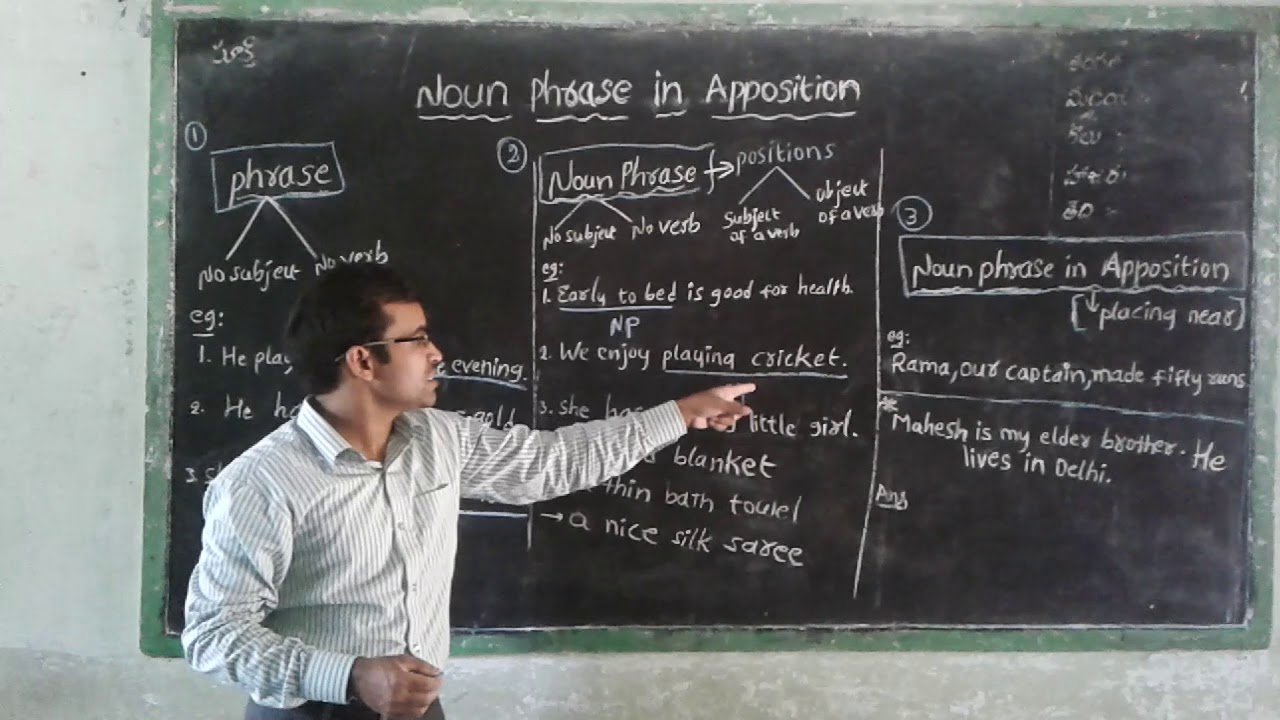 Noun Phrase in Apposition
①
phrase
No subject No verb
eg:
1. He play evening.
2. He gold
3.
②
Noun Phrase → positions
No subject No verb
Subject of a verb
object of a verb
eg:
1. Early to bed is good for health.
NP
2. We enjoy playing cricket.
3. She little girl.
blanket
thin bath towel
→ a nice silk saree
③
Noun phrase in Apposition
[↓ placing near]
eg:
Rama, our captain, made fifty runs
* Mahesh is my elder brother. He
lives in Delhi.
Ans